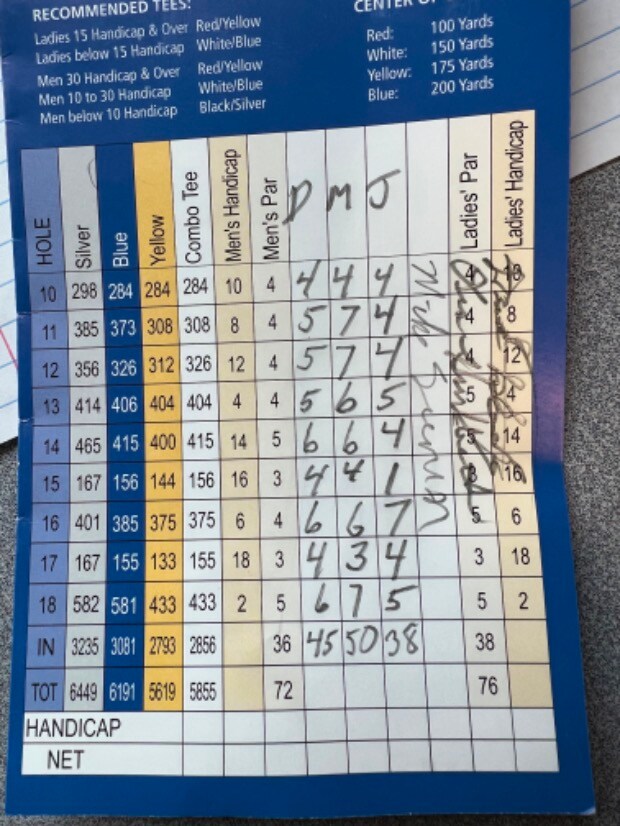 RECOMMENDED TEES:
CENTER O
Ladies 15 Handicap & Over Red/Yellow
Ladies below 15 Handicap White/Blue
Men 30 Handicap & Over Red/Yellow
Men 10 to 30 Handicap White/Blue
Men below 10 Handicap Black/Silver
Red: 100 Yards
White: 150 Yards
Yellow: 175 Yards
Blue: 200 Yards
HOLE Silver Blue Yellow Combo Tee Men's Handicap Men's Par D M J Ladies' Par Ladies' Handicap
10 298 284 284 284 10 4 4 4 4 4 18
11 385 373 308 308 8 4 5 7 4 4 8
12 356 326 312 326 12 4 5 7 4 4 12
13 414 406 404 404 4 4 5 6 5 5 4
14 465 415 400 415 14 5 6 6 4 5 14
15 167 156 144 156 16 3 4 4 1 3 16
16 401 385 375 375 6 4 6 6 7 5 6
17 167 155 133 155 18 3 4 3 4 3 18
18 582 581 433 433 2 5 6 7 5 5 2
IN 3235 3081 2793 2856 36 45 50 38 38
TOT 6449 6191 5619 5855 72 76
HANDICAP
NET